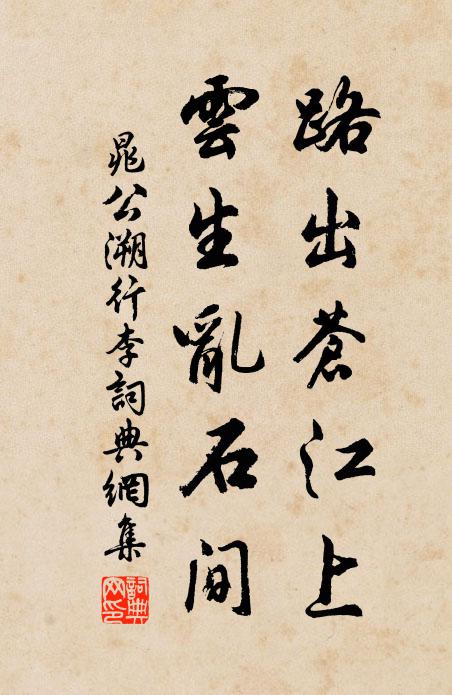 路出蒼江上
雲生亂石間
晁公溯行李詞典網集
詞典
网印